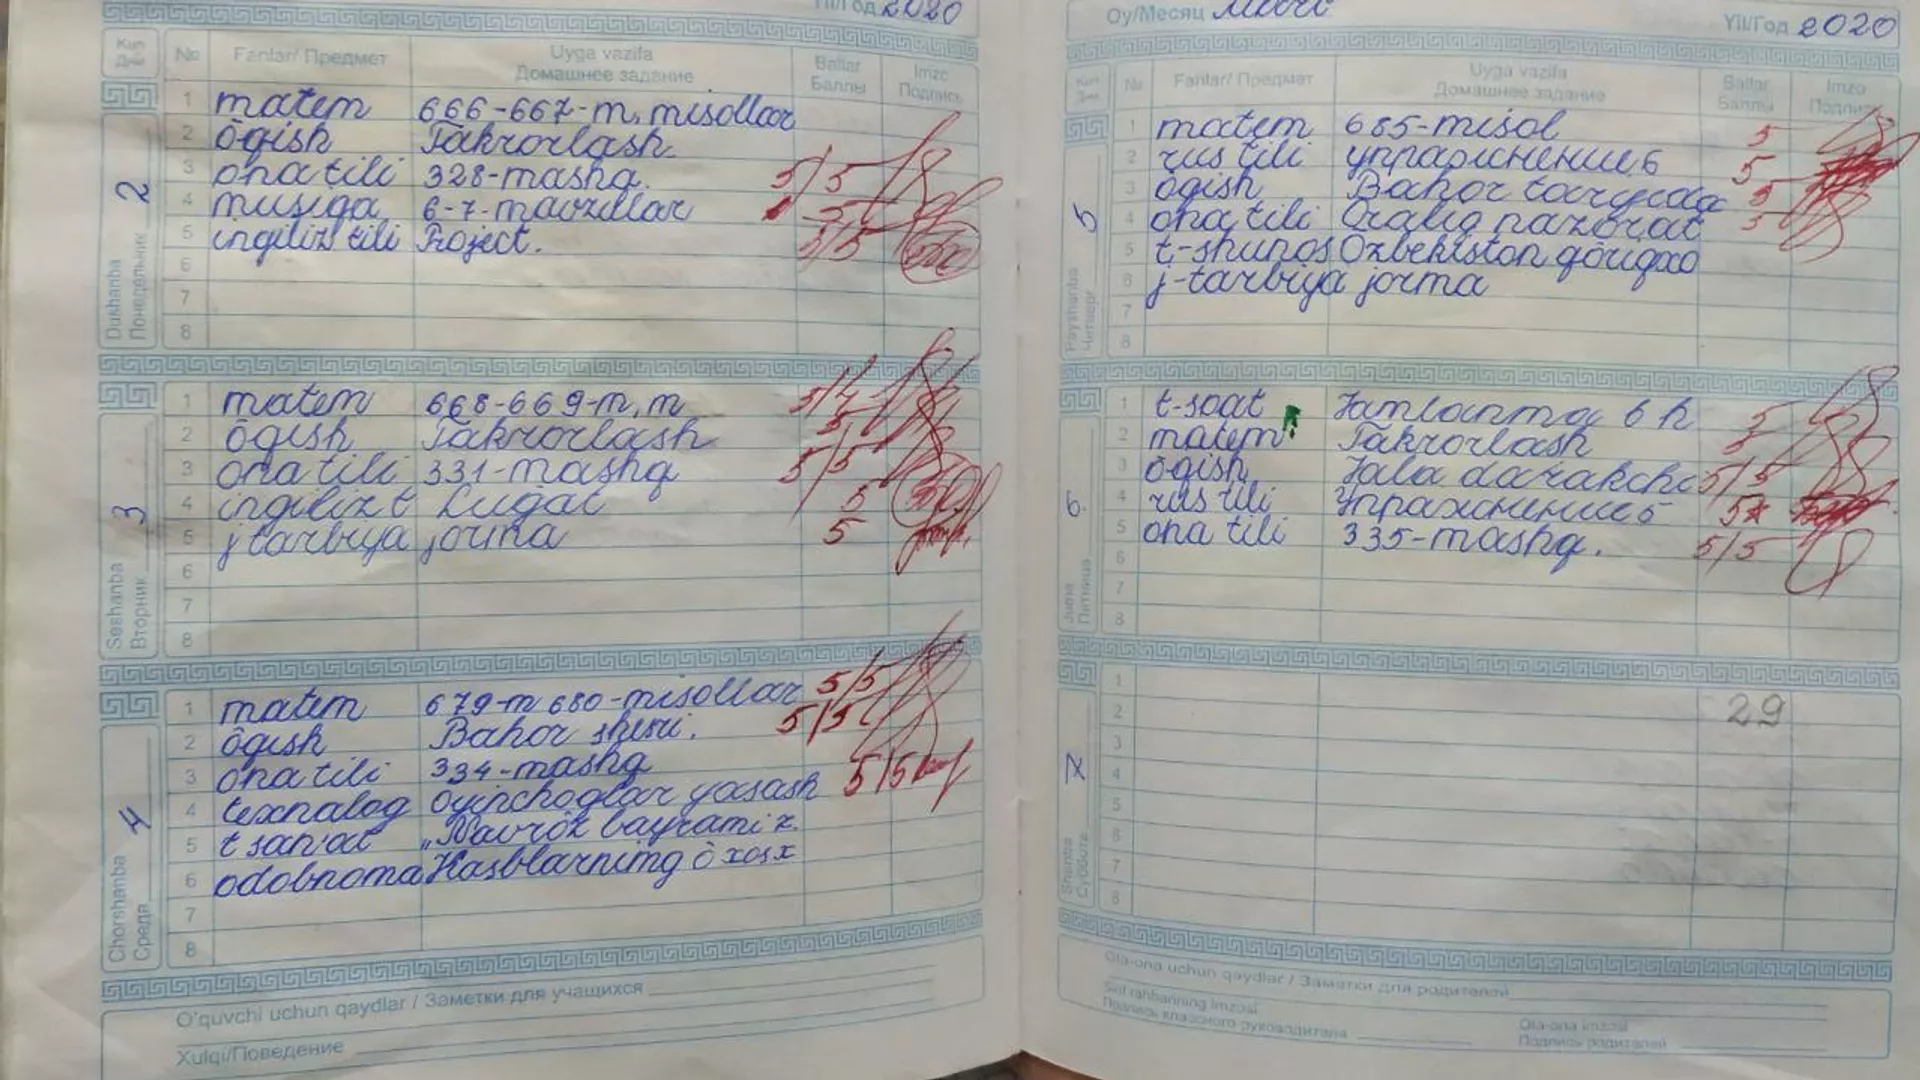 Yil/Год 2020
Kun Дни № Fanlar/ Предмет Uyga vazifa Домашнее задание Ballar Баллы Imzo Подпись
Dushanba Понедельник 2
1 matem 666-667-m. misollar
2 ōgish Takrorlash
3 ona tili 328-mashq. 5/5
4 musiqa 6-7-mavzular 5
5 ingiliz tili Project. 5/5
6
7
8
Seshanba Вторник 3
1 matem 668-669-m, m 5/4
2 ōgish Takrorlash 5
3 ona tili 331-mashq 5/5
4 ingiliz t Lugat 5
5 j tarbiya jorma 5
6
7
8
Chorshanba Среда 4
1 matem 679-m 680-misollar 5/5
2 ōgish Bahor sheri. 5/5
3 ona tili 334-mashq 5/5
4 texnalog ōyinchoqlar yasash
5 t san'at „Navrōz bayrami z.
6 odobnoma Kasblarning ō xosx
7
8
O'quvchi uchun qaydlar / Заметки для учащихся
Xulqi/Поведение
Oy/Месяц Mart Yil/Год 2020
Kun Дни № Fanlar/ Предмет Uyga vazifa Домашнее задание Ballar Баллы Imzo Подпись
Payshanba Четверг 5
1 matem 685-misol 5
2 rus tili упражнение 6 5
3 ōgish Bahor tongida 5
4 ona tili Oraliq nazorat 5
5 t-shunos Ozbekiston qōriqxo
6 j-tarbiya jorma
7
8
Juma Пятница 6
1 t-soat Jamlanma 6 h 5
2 matem Takrorlash 5
3 ōgish Jala darakchi 5/5
4 rus tili Упражнение 5 5
5 ona tili 335-mashq. 5/5
6
7
8
Shanba Суббота 7
1
2 29
3
4
5
6
7
8
Ota-ona uchun qaydlar / Заметки для родителей
Sinf rahbarining imzosi
Подпись классного руководителя
Ota-ona imzosi
Подпись родителей